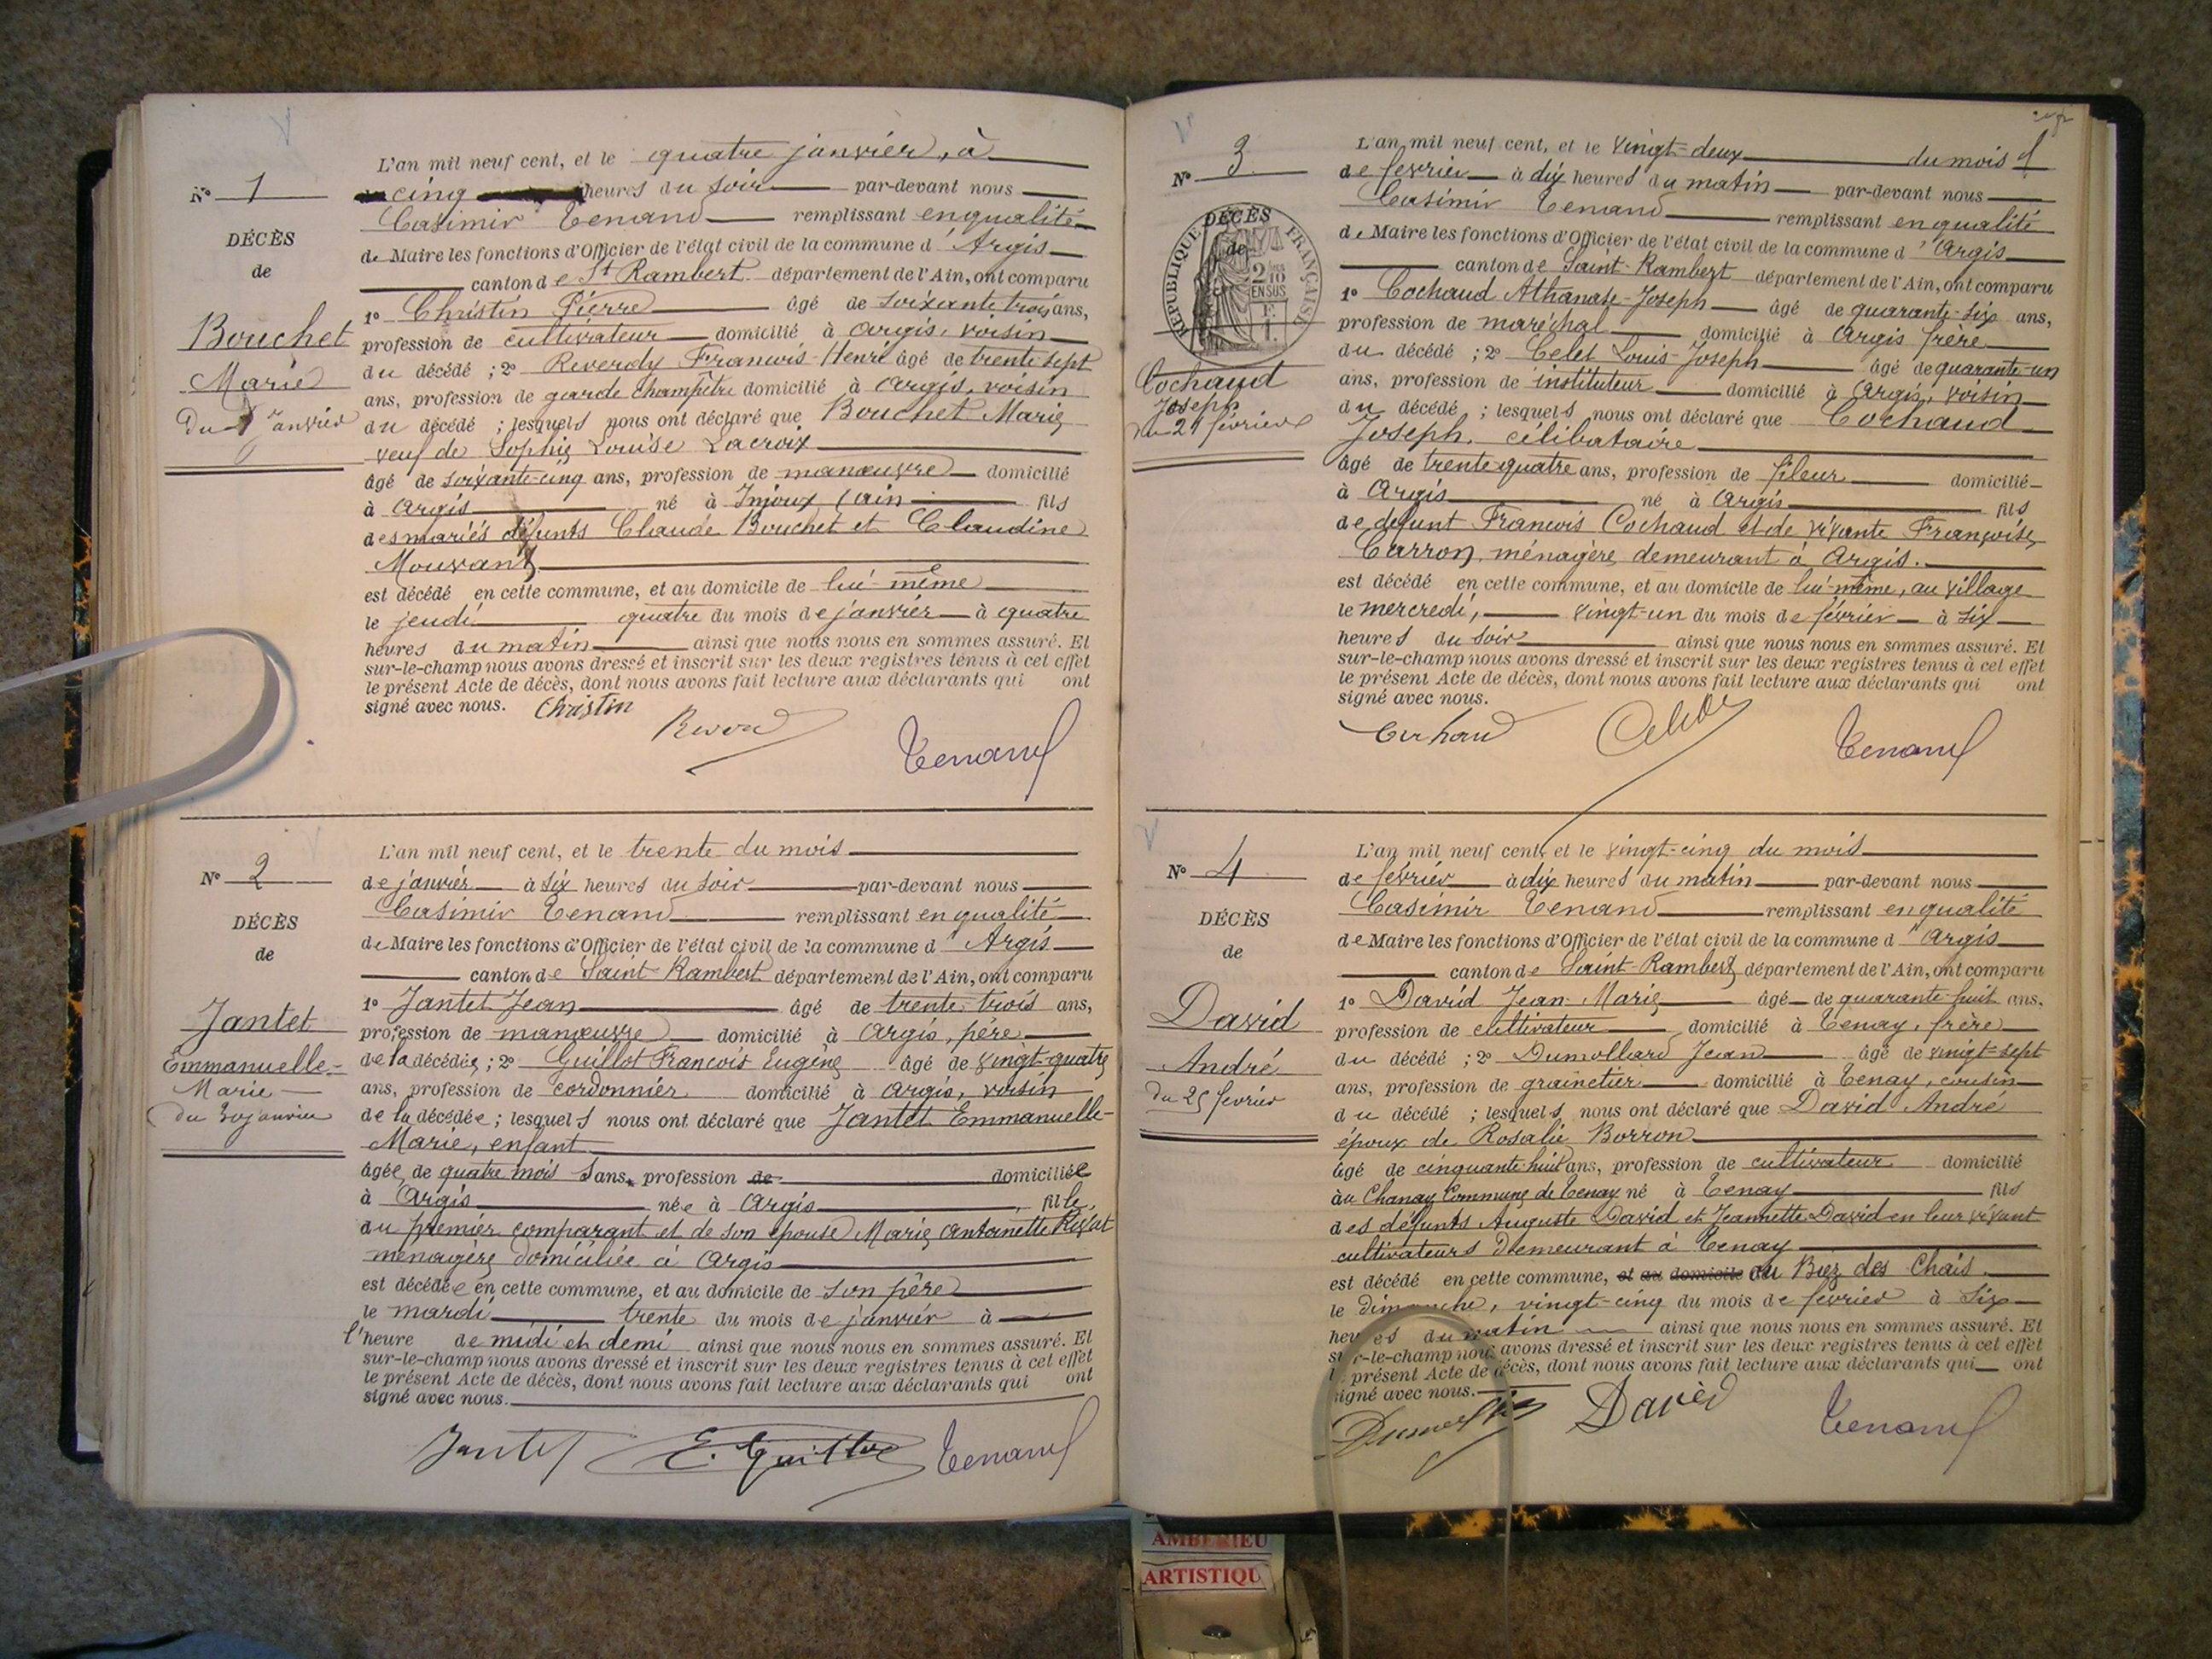 N° 1
DÉCÈS
de
Bouchet
Marie
Du 4 Janvier
L'an mil neuf cent, et le quatre janvier, à
cinq heures du soir par-devant nous
Casimir Tenand remplissant en qualité
de Maire les fonctions d'Officier de l'état civil de la commune d' Argis
canton de St Rambert département de l'Ain, ont comparu
1° Christin Pierre âgé de soixante trois ans,
profession de cultivateur domicilié à Argis, voisin
du décédé ; 2° Reverdy François-Henri âgé de trente-sept
ans, profession de garde champêtre domicilié à Argis, voisin
du décédé ; lesquels nous ont déclaré que Bouchet Marie
veuf de Sophie Louise Lacroix
âgé de soixante-cinq ans, profession de manœuvre domicilié
à Argis né à Injoux (Ain fils
des mariés défunts Claude Bouchet et Claudine
Mouvant
est décédé en cette commune, et au domicile de lui-même
le jeudi quatre du mois de janvier à quatre
heures du matin ainsi que nous nous en sommes assuré. Et
sur-le-champ nous avons dressé et inscrit sur les deux registres tenus à cet effet
le présent Acte de décès, dont nous avons fait lecture aux déclarants qui ont
signé avec nous. Christin
Tenand
N° 2
DÉCÈS
de
Jantet
Emmanuelle-
Marie
du 30 janvier
L'an mil neuf cent, et le trente du mois
de janvier à six heures du soir par-devant nous
Casimir Tenand remplissant en qualité
de Maire les fonctions d'Officier de l'état civil de la commune d' Argis
canton de Saint-Rambert département de l'Ain, ont comparu
1° Jantet Jean âgé de trente-trois ans,
profession de manœuvre domicilié à Argis, père
de la décédée ; 2° Guillot François Eugène âgé de vingt-quatre
ans, profession de cordonnier domicilié à Argis, voisin
de la décédée ; lesquels nous ont déclaré que Jantet Emmanuelle-
Marie, enfant
âgée de quatre mois sans profession de domiciliée
à Argis née à Argis, fille
du premier comparant et de son épouse Marie Antoinette
ménagère domiciliée à Argis
est décédée en cette commune, et au domicile de son père
le mardi trente du mois de janvier à
l'heure de midi et demi ainsi que nous nous en sommes assuré. Et
sur-le-champ nous avons dressé et inscrit sur les deux registres tenus à cet effet
le présent Acte de décès, dont nous avons fait lecture aux déclarants qui ont
signé avec nous.
Jantet E. Guillot Tenand
N° 3
DÉCÈS
de
RÉPUBLIQUE FRANÇAISE
2/10 EN SUS
Cochaud
Joseph
du 21 février
L'an mil neuf cent, et le vingt-deux du mois
de février à dix heures du matin par-devant nous
Casimir Tenand remplissant en qualité
de Maire les fonctions d'Officier de l'état civil de la commune d' Argis
canton de Saint-Rambert département de l'Ain, ont comparu
1° Cochaud Athanase-Joseph âgé de quarante-six ans,
profession de maréchal domicilié à Argis frère
du décédé ; 2° Celet Louis-Joseph âgé de quarante-un
ans, profession de instituteur domicilié à Argis, voisin
du décédé ; lesquels nous ont déclaré que Cochaud
Joseph, célibataire
âgé de trente quatre ans, profession de fileur domicilié
à Argis né à Argis fils
de défunt François Cochaud et de vivante Françoise
Carron, ménagère demeurant à Argis.
est décédé en cette commune, et au domicile de lui-même, au village
le mercredi, vingt-un du mois de février à six
heures du soir ainsi que nous nous en sommes assuré. Et
sur-le-champ nous avons dressé et inscrit sur les deux registres tenus à cet effet
le présent Acte de décès, dont nous avons fait lecture aux déclarants qui ont
signé avec nous.
Tenand
N° 4
DÉCÈS
de
David
André
Du 25 février
L'an mil neuf cent, et le vingt-cinq du mois
de février à dix heures du matin par-devant nous
Casimir Tenand remplissant en qualité
de Maire les fonctions d'Officier de l'état civil de la commune d' Argis
canton de Saint-Rambert département de l'Ain, ont comparu
1° David Jean-Marie âgé de quarante-huit ans,
profession de cultivateur domicilié à Tenay, frère
du décédé ; 2° Dumollard Jean âgé de vingt-sept
ans, profession de grainetier domicilié à Tenay, cousin
du décédé ; lesquels nous ont déclaré que David André
époux de Rosalie Borron
âgé de cinquante-huit ans, profession de cultivateur domicilié
au Chanay Commune de Tenay né à Tenay fils
des défunts Auguste David et Jeannette David en leur vivant
cultivateurs demeurant à Tenay
est décédé en cette commune, et au domicile au Biez des Chais
le dimanche, vingt-cinq du mois de février à six
heures du matin ainsi que nous nous en sommes assuré. Et
sur-le-champ nous avons dressé et inscrit sur les deux registres tenus à cet effet
le présent Acte de décès, dont nous avons fait lecture aux déclarants qui ont
signé avec nous.
David Tenand
AMBERIEU
ARTISTIQU